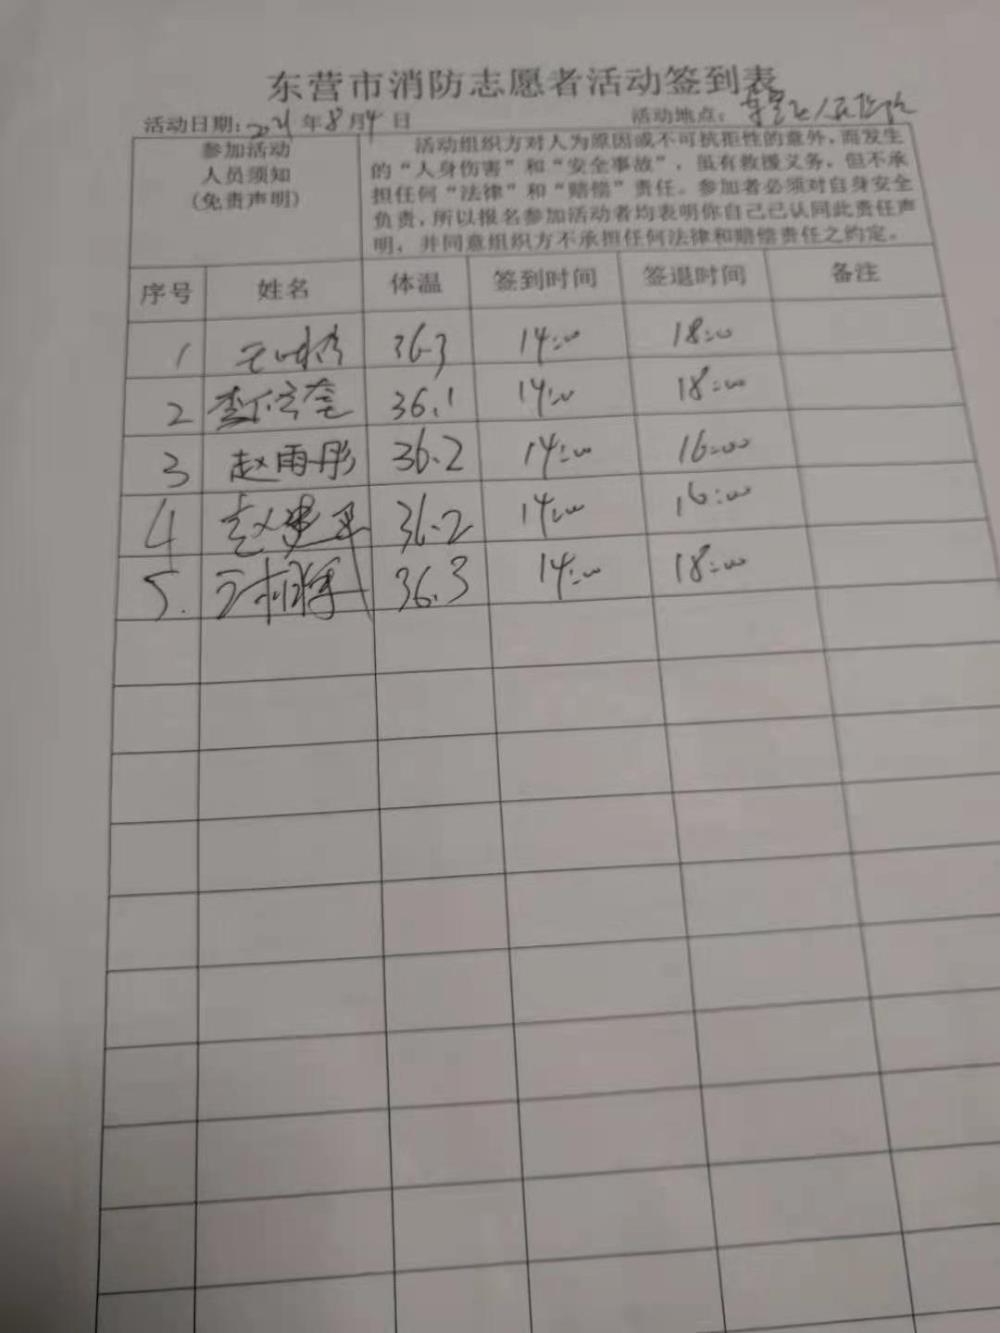 东营市消防志愿者活动签到表
活动日期：2021年8月4日 活动地点：人民医院
参加活动
人员须知
（免责声明）
活动组织方对人为原因或不可抗拒性的意外，而发生
的“人身伤害”和“安全事故”，虽有救援义务，但不承
担任何“法律”和“赔偿”责任。参加者必须对自身安全
负责，所以报名参加活动者均表明你自己已认同此责任声
明，并同意组织方不承担任何法律和赔偿责任之约定。
序号 姓名 体温 签到时间 签退时间 备注
1 36.3 14:00 18:00
2 36.1 14:00 18:00
3 赵雨彤 36.2 14:00 16:00
4 赵建平 36.2 14:00 16:00
5. 36.3 14:00 18:00